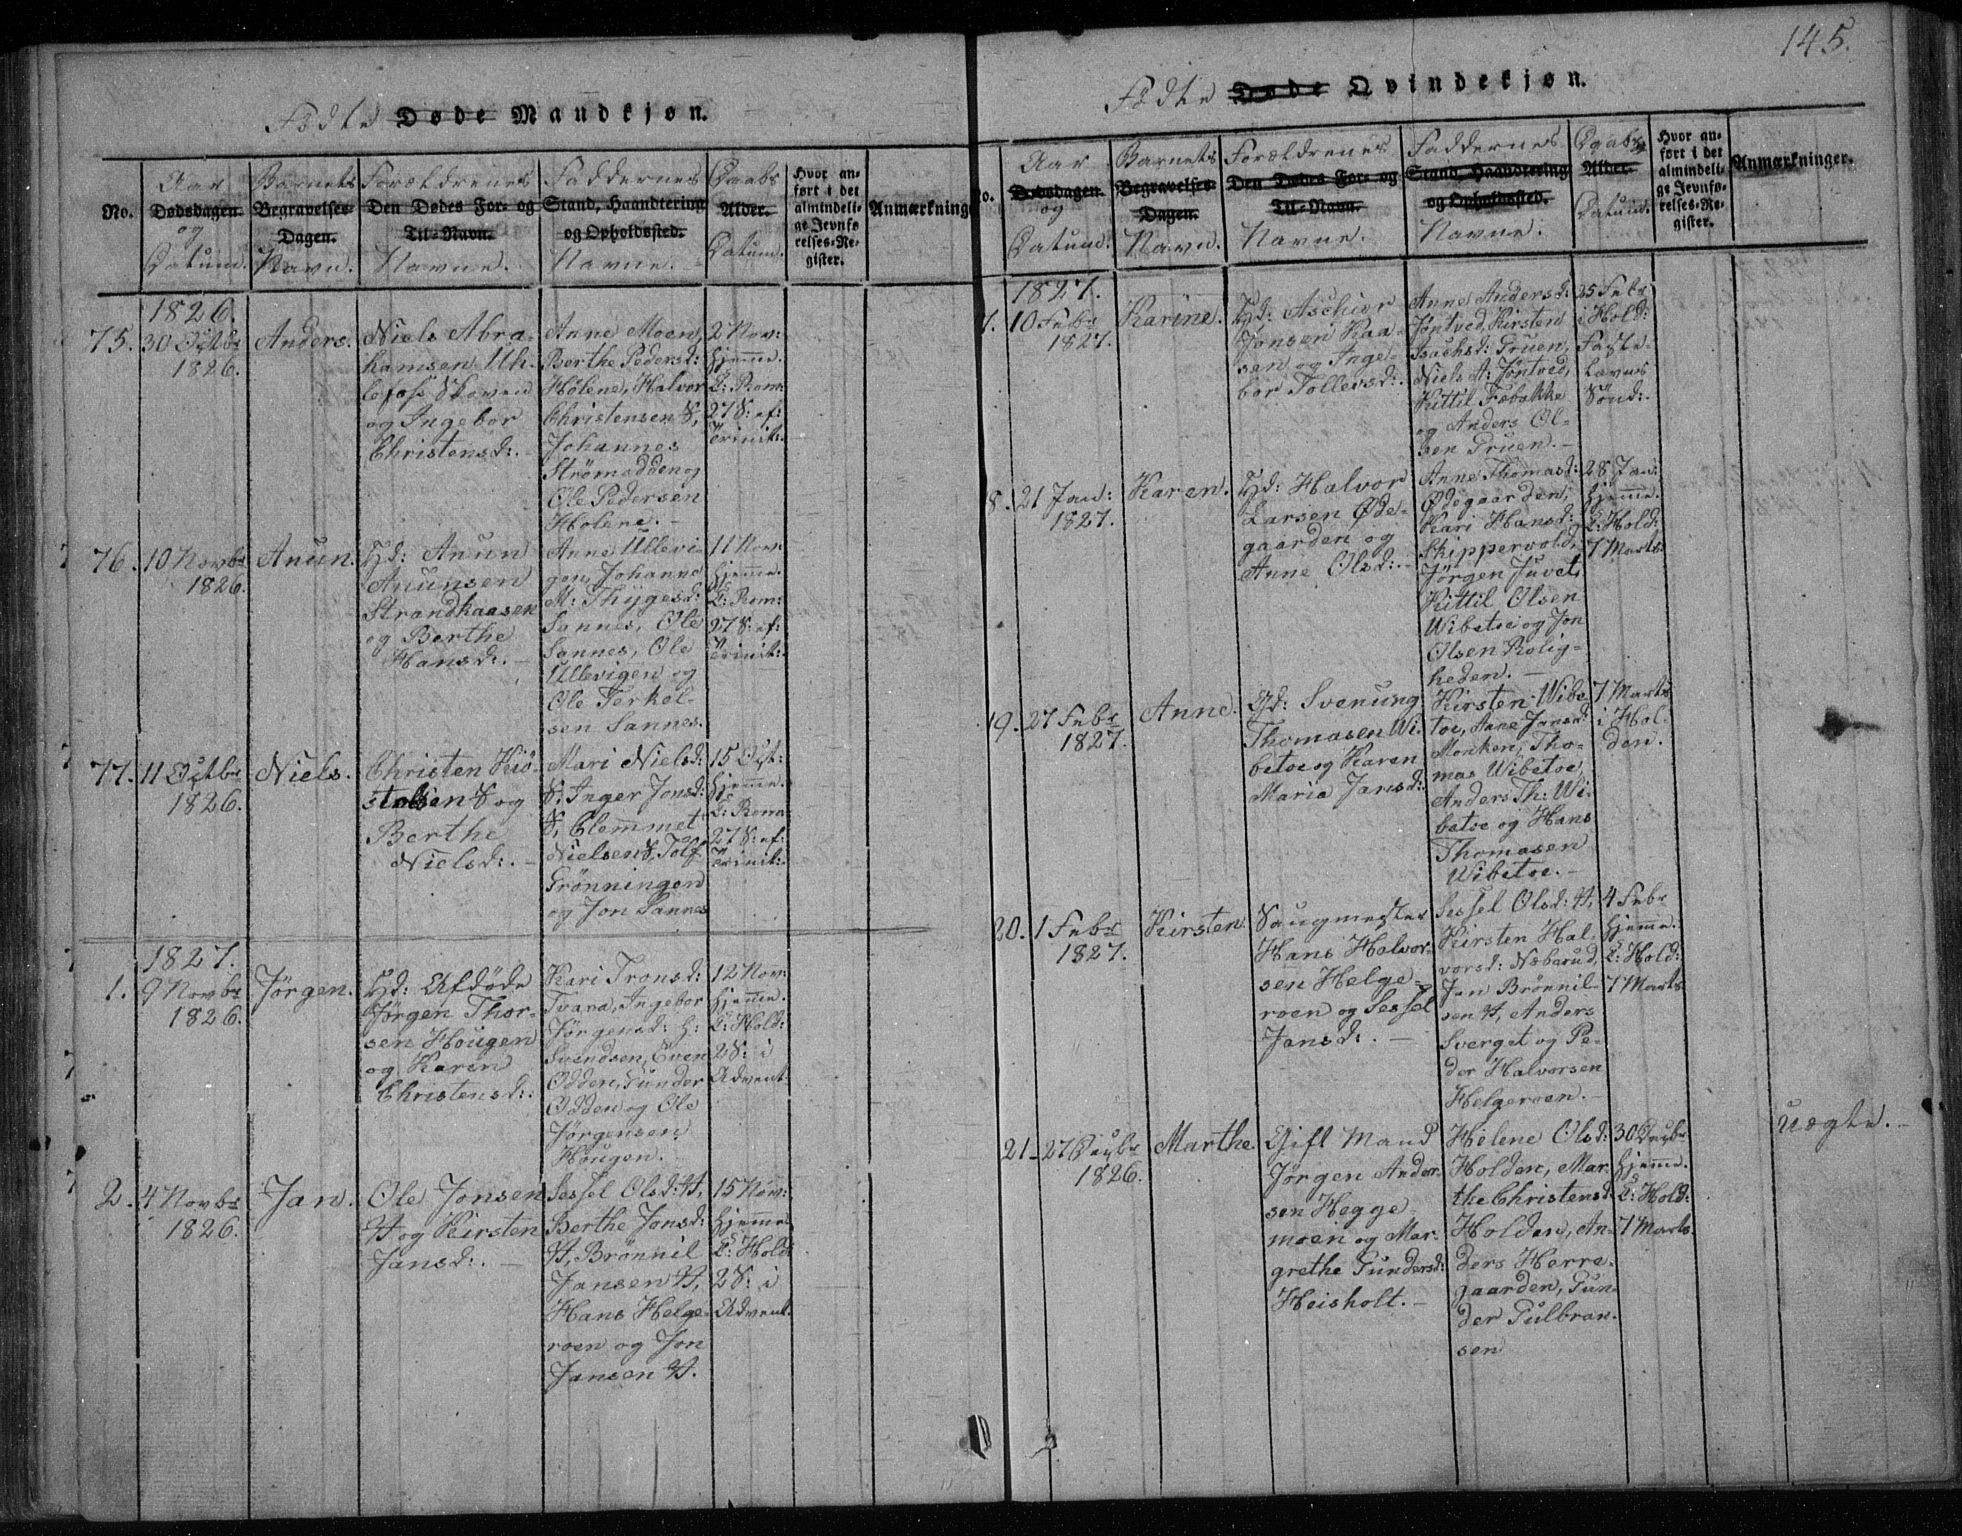 145.
Fødte Døde Mandkjøn.
No.
Aar
Dødsdagen.
og
Datum.
Barnets
Begravelses-
Dagen.
Navn.
Forældrenes
Den Dødes For- og
Til-Navn.
Navne.
Faddernes
Stand, Haandtering
og Opholdssted.
Navne.
Daabs
Alder.
Datum.
Hvor an-
ført i det
almindeli-
ge Jevnfø
relses-Re-
gister.
Anmærkninge
1826.
75. 30 Octbr
1826.
Anders.
Niels Abra-
hamsen Uh-
lefos Skoven
og Ingebor
Christensd:.
Anne Moen,
Berthe Pedersd:
Holene, Halvor
Christensen S,
Johannes
Strømodden og
Ole Pedersen
Holene.
2 Nov:
hjemme.
C: Rom:
27 S: ef:
Trinit:.
76. 10 Novbr
1826.
Anun.
Hd: Anun
Anunsen
Strandkaasen
og Berthe
Hansd:.
Anne Ullevi-
gen, Johanne
M: Thygesd:
Sannes, Ole
Sannes, Ole
Ullevigen og
Ole Terkel-
sen Sannes.
11 Nov:
hjemme.
C: Rom:
27 S: ef:
Trinit:.
77. 11 Octbr
1826.
Niels.
Christen Kiø-
stolsen S og
Berthe
Nielsd:.
Mari Nielsd:
S: Inger Jonsd:
S, Clemmet
Nielsen S, Tolf
Grønningen
og Jon Sannes
15 Oct:
hjemme.
C: Rom:
27 S: ef:
Trinit:.
1827.
1. 9 Novbr
1826.
Jørgen.
Hd: Afdøde
Jørgen Thor-
sen Hougen
og Karen
Christensd:.
Kari Tronsd:
Tvara, Ingebor
Jørgensd: H:
Svendsen, Even
Odden, Gunder
Odden og Ole
Jørgensen
Hougen.
12 Nov:
hjemme.
C: Hold:
2 S: i
Advent.
2. 4 Novbr
1826.
Jan.
Ole Jonsen
H og Kirsten
Jansd:.
Sessel Olsd: H,
Berthe Jonsd:
H, Brønnil
Jansen H,
Hans Helge-
roen og Jon
Jansen H.
15 Nov:
hjemme
C: Hold:
2 S: i
Advent.
Fødte Døde Qvindekjøn.
o.
Aar
Dødsdagen.
og
Datum.
Barnets
Begravelses-
Dagen.
Navn.
Forældrenes
Den Dødes For- og
Til-Navn.
Navne.
Faddernes
Stand, Haandtering
og Opholdssted.
Navne.
Daabs
Alder.
Datum.
Hvor an-
ført i det
almindeli-
ge Jevnfø-
relses-Re-
gister.
Anmærkninger.
1827.
7. 10 Febr
1827.
Karine.
Hd: Aschier
Jonsen Kaa-
sen og Inge-
bor Tollevsd:.
Anne Andersd:
Jøntved, Kirsten
Isachsd: Gruen,
Niels A: Jøntved,
Kittil Fæbakke
og Anders Ol-
sen Gruen.
25 Febr
i Hold:
Faste-
lavns
Sønd:.
8. 21 Jan:
1827.
Karen.
Hd: Halvor
Larsen Øde-
gaarden og
Anne Olsd:.
Anne Thomasd:
Ødegaarden,
Kari Hansd:
Skippervold,
Jørgen Juvet,
Kittil Olsen
Wibetoe og Jon
Olsen Rolig-
heden.
28 Jan:
hjemme.
C: Hold:
7 Marts
19. 27 Febr
1827.
Anne.
Hd: Svenung
Thomasen Wi-
betoe og Karen
Maria Jansd:
Kirsten Wibe-
toe, Anne Jansd:
Monken, Tho-
mas Wibetoe,
Anders Th: Wi-
betoe og Hans
Thomasen
Wibetoe.
7 Marts
i Hol-
den.
20. 1 Febr
1827.
Kirsten
Saugmester
Hans Halvor-
sen Helge-
roen og Sessel
Jansd:.
Sessel Olsd: H,
Kirsten Hal-
vorsd: Næbarud,
Jan Brønnil-
sen H, Anders
Sverget og Pe-
der Halvorsen
Helgeroen.
4 Febr
hjemme.
C: Hold:
7 Marts
21. 27 Decbr
1826.
Marthe
Gift Mand
Jørgen Ander-
sen Hegge-
moen og Mar-
grethe Gundersd:
Heisholt.
Helene Olsd:
Holden, Mar-
the Christensd:
Holden, An-
ders Herre-
gaarden, Gun-
der Gulbran-
sen
30 Decbr
hjemme.
C: Hold:
7 Marts.
uægte.